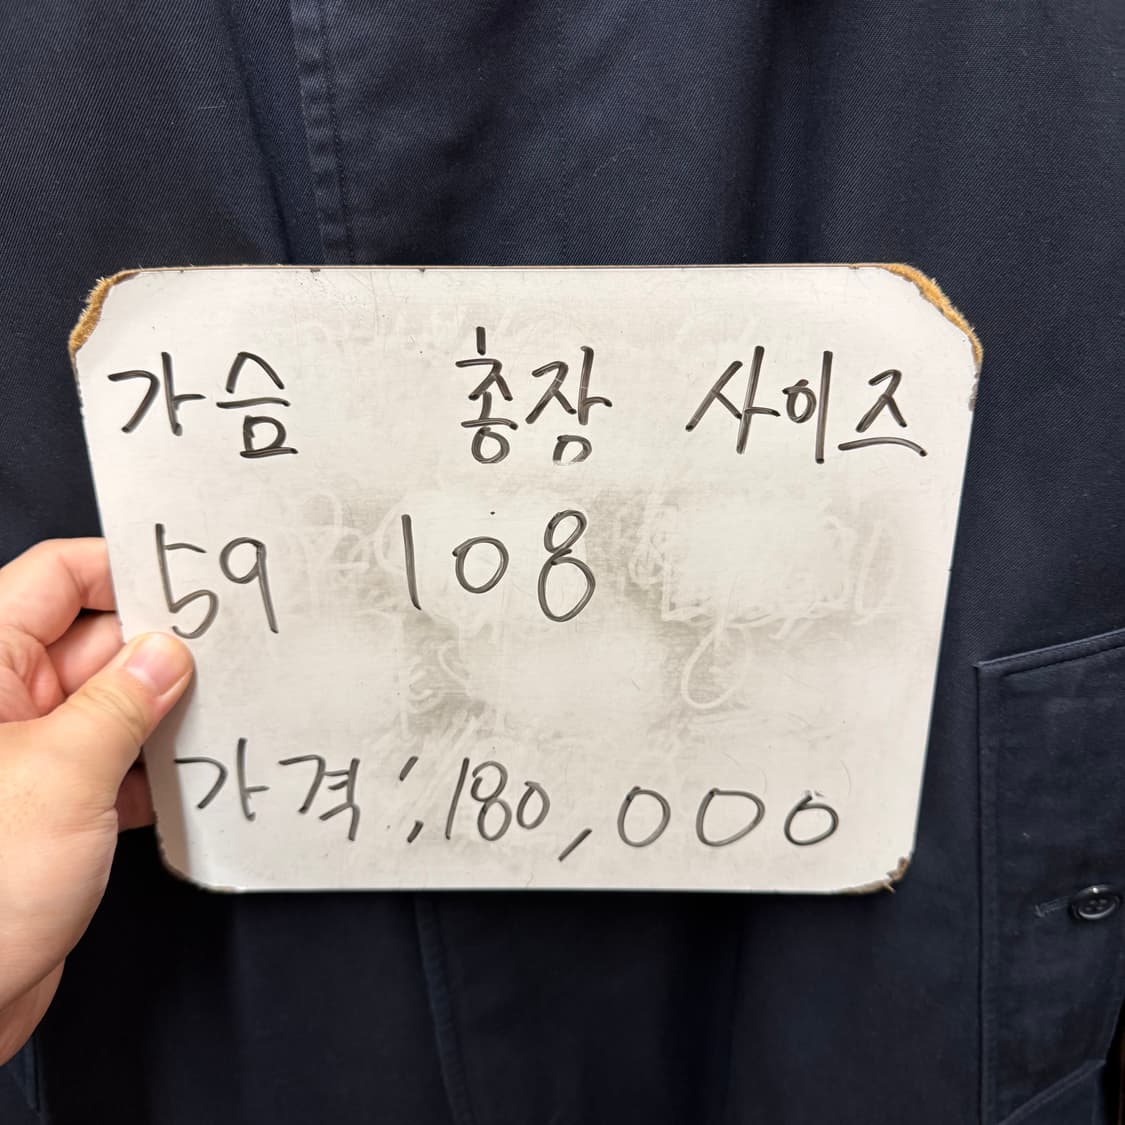 가슴 총장 사이즈
59 108
가격 : 180,000